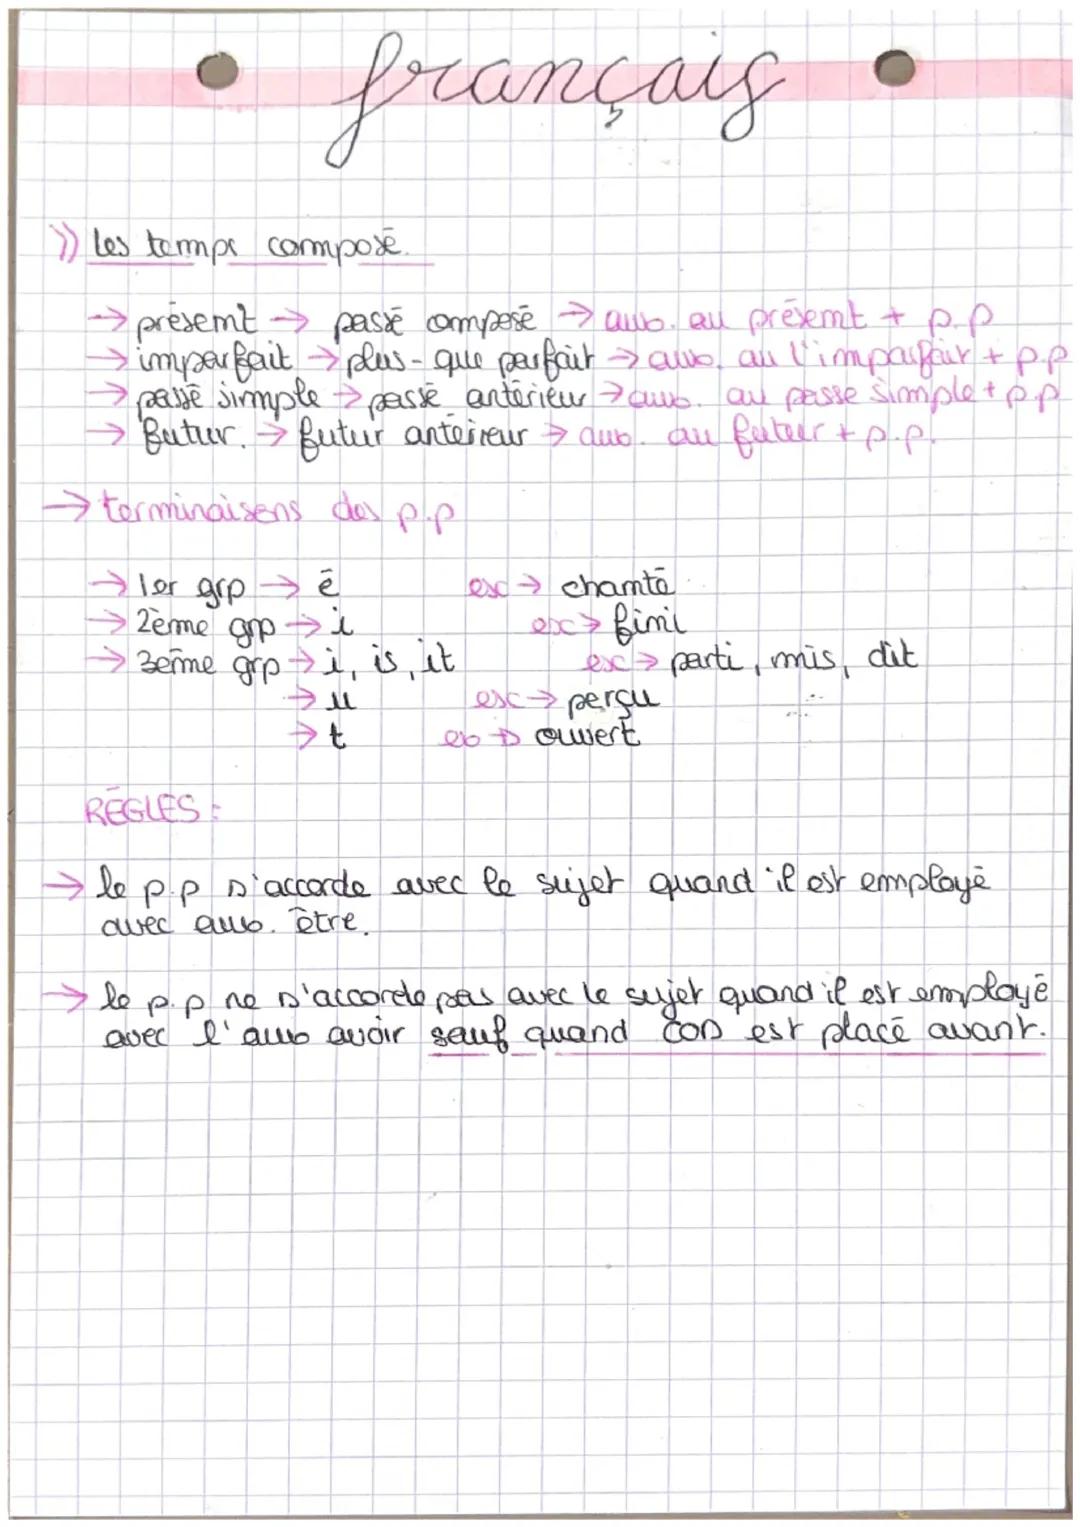 français
>> les temps composé.
→ présent → passé composé → aux. au présent + p.p
→ imparfait → plus-que parfait → aux. au l'imparfait + p.p
→ passé simple → passé antérieur → aux. au passe simple + p.p
→ futur. → futur anteireur → aux. au futur + p.p.
→ terminaisons des p.p
→ 1er grp → é ex → chanté
→ 2ème grp → i ex → fini
→ 3eme grp → i, is, it ex → parti, mis, dit
→ u ex → perçu
→ t ex → ouvert
RÉGLES :
→ le p.p s'accorde avec le sujet quand il est employé
avec aux. être.
→ le p.p ne s'accorde pas avec le sujet quand il est employé
avec l'aux avoir sauf quand COD est placé avant.